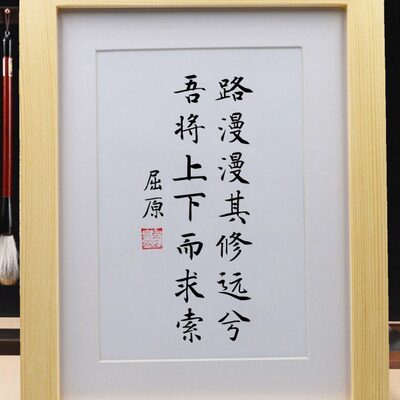 路漫漫其修远兮
吾将上下而求索
屈原